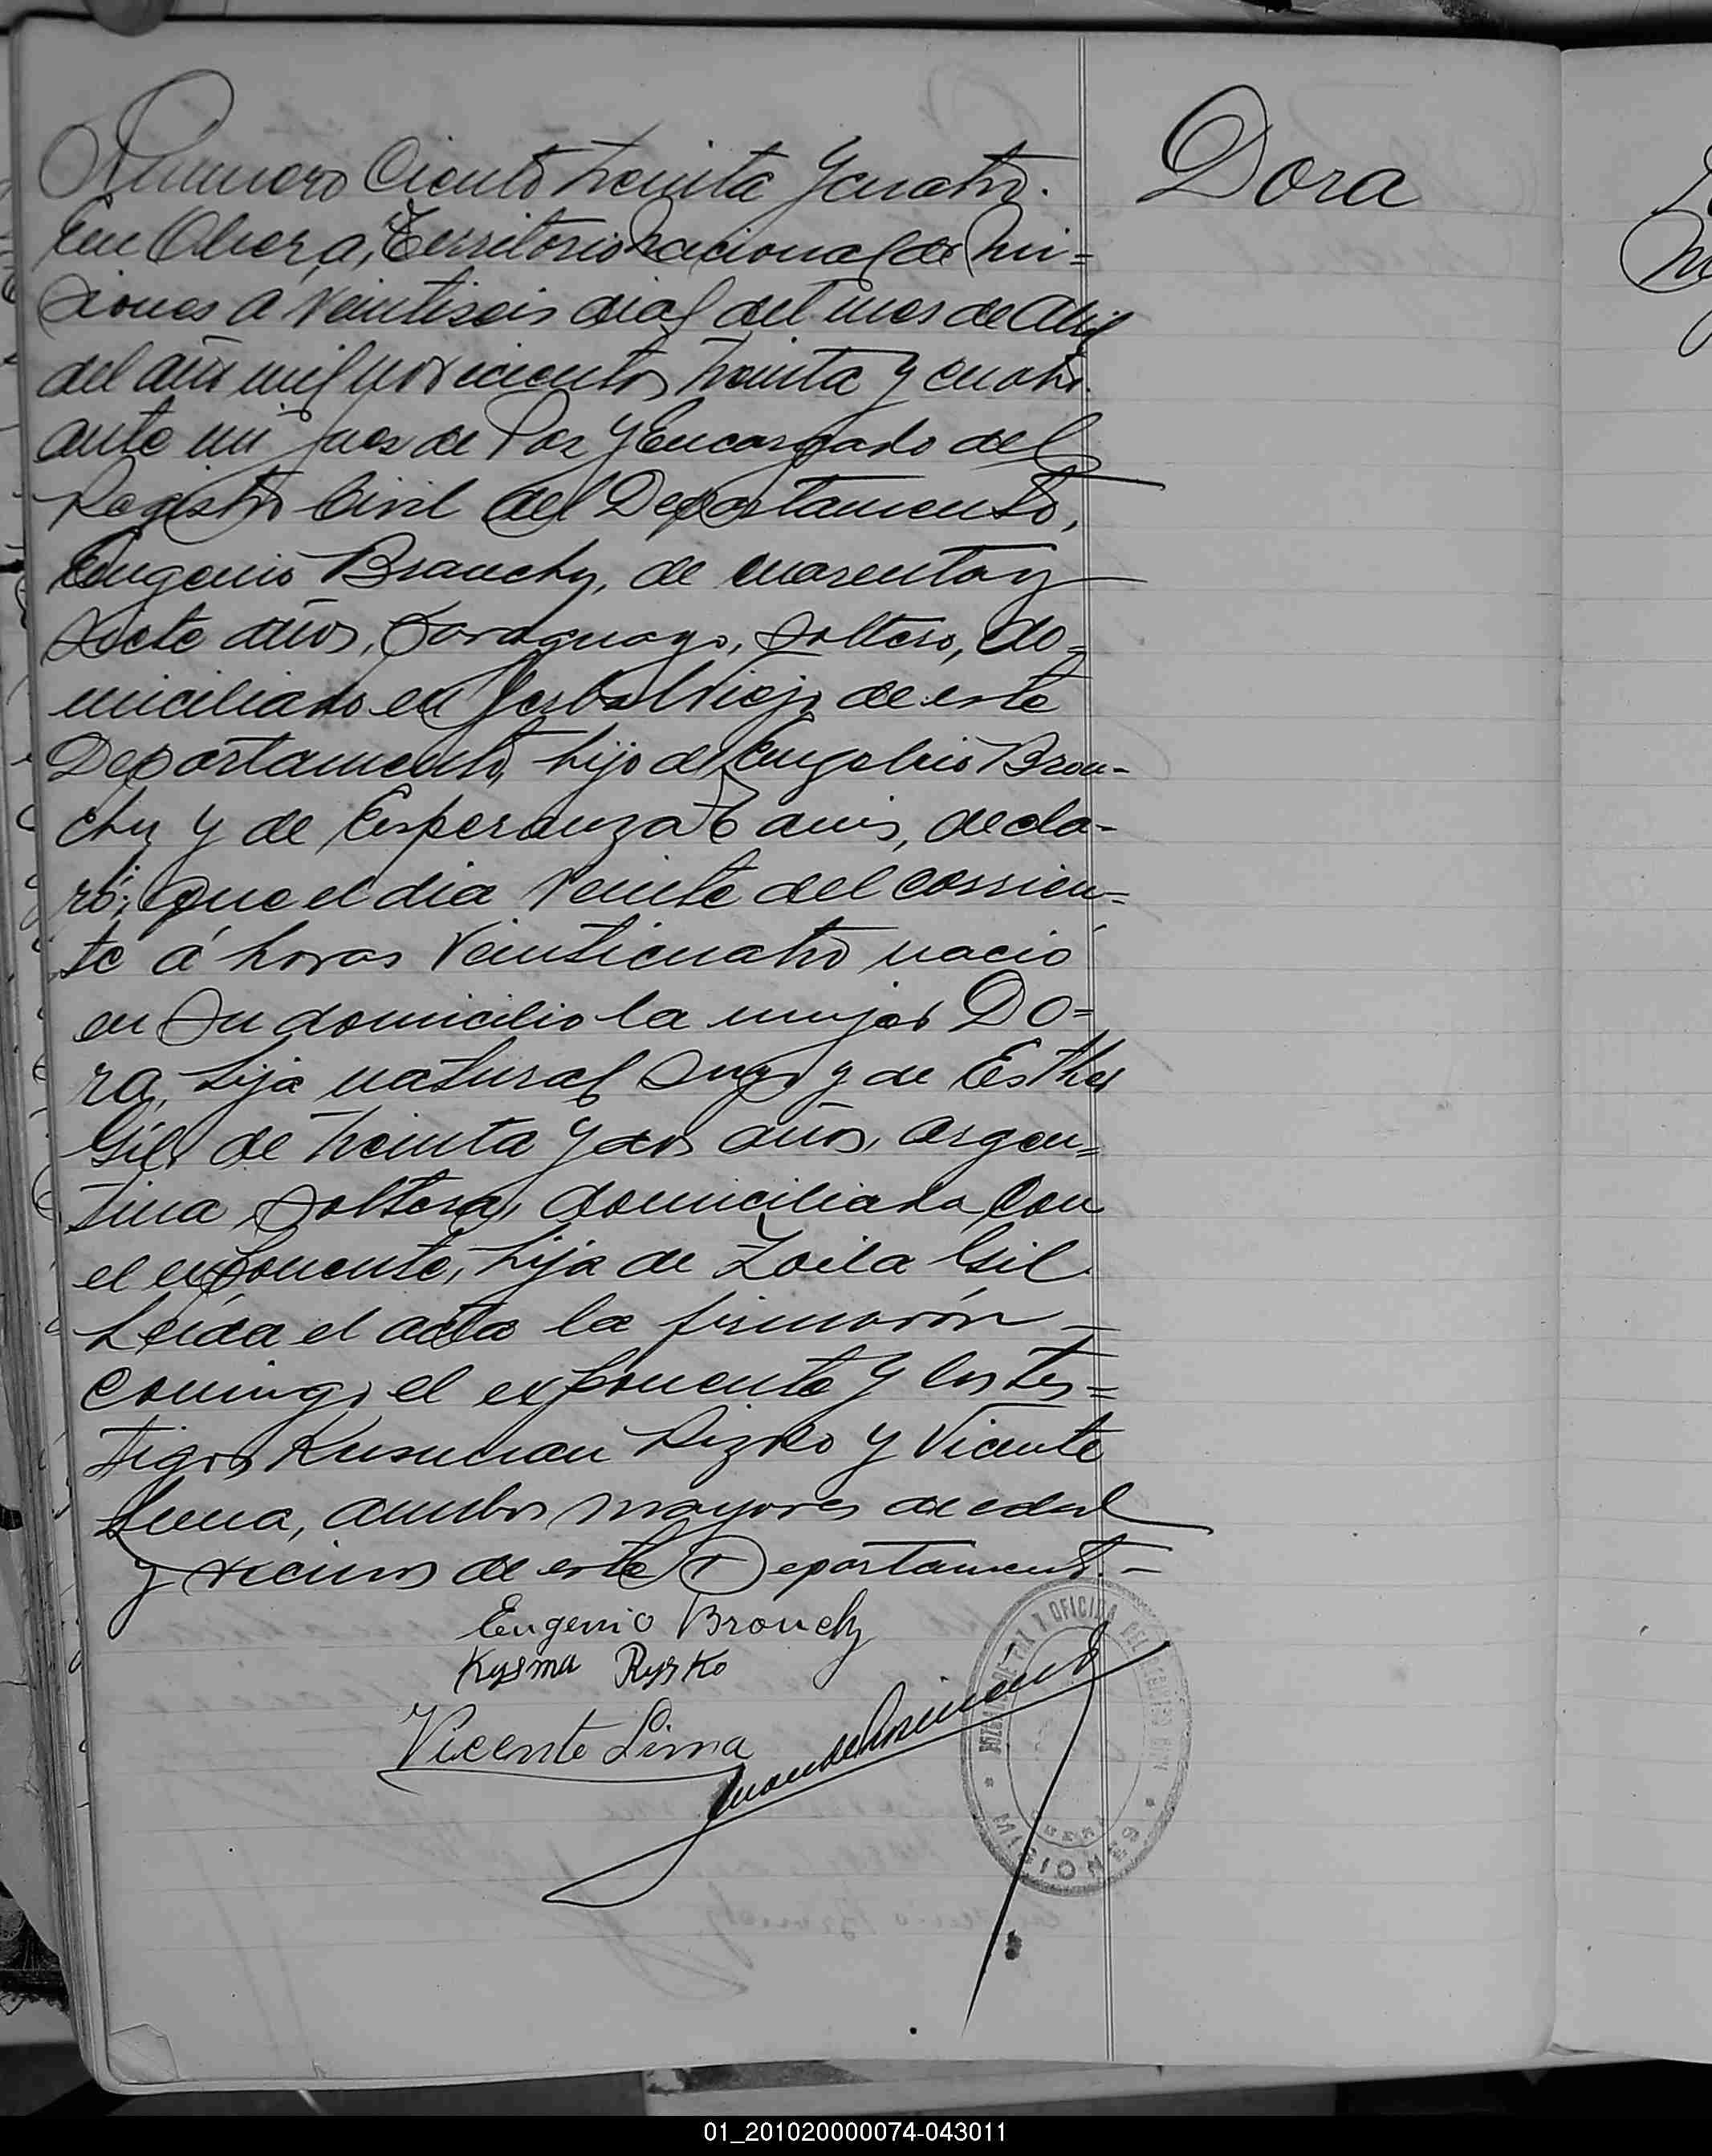 Número Ciento treinta y cuatro.
Dora
En Oberá, Territorio Nacional de Mi=
siones a veintiseis dias del mes de Abril
del año mil novecientos treinta y cuatro.
ante mi Juez de Paz y Encargado del
Registro Civil del Departamento,
Eugenio Brouchy, de cuarenta y
siete años, Paraguayo, soltero, do=
miciliado en Yerbal Viejo de este
Departamento, hijo de Brou-
chy y de Esperanza, decla-
ró: Que el dia veinte del corrien=
te á horas veinticuatro nació
en su domicilio la mujer DO=
ra, hija natural suya y de Esther
Gil, de treinta y dos años, argen=
tina, soltera, domiciliada con
el exponente, hija de Zoila Gil
Leida el acta la firmarón
conmigo el exponente y los tes=
tigos Kusman Rizko y Vicente
Lima, ambos mayores de edad
y vecinos de este Departamento.-
Eugenio Brouchy
Kysma Ryzko
Vicente Lima
JUZGADO DE PAZ Y OFICINA DEL REGISTRO CIVIL
MISIONES
01_201020000074-043011